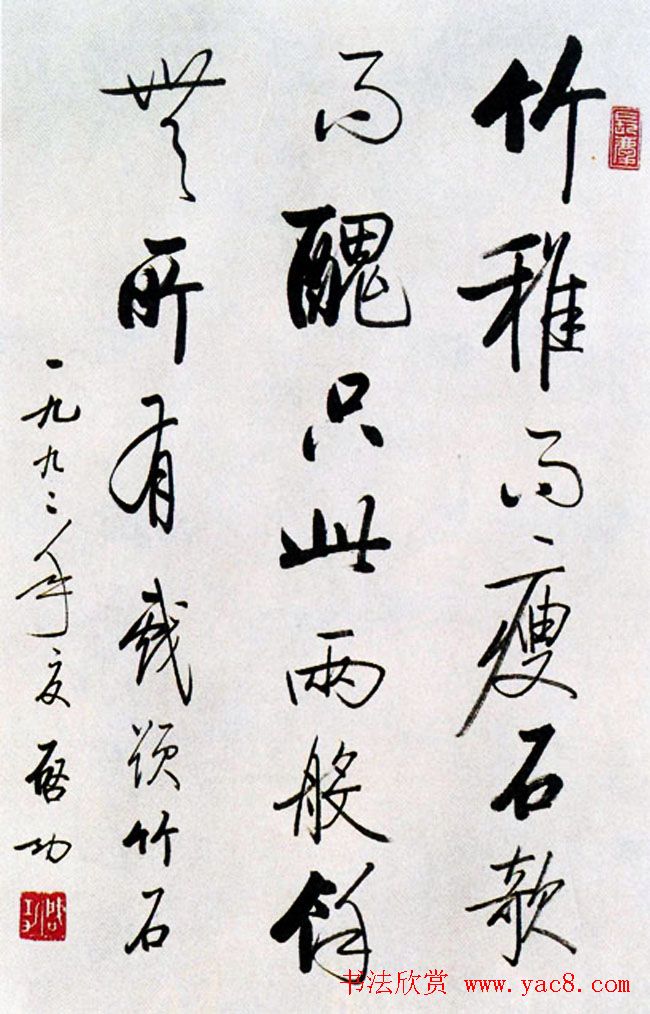 竹稚而瘦石欹
而醜只此兩般餘
無所有戲題竹石
一九九二年夏啓功
书法欣赏 www.yac8.com